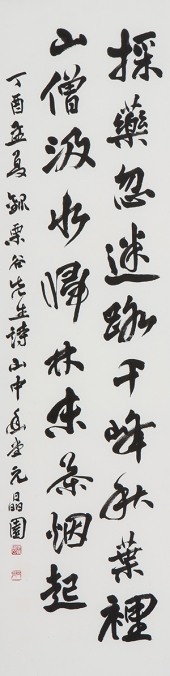 採藥忽迷路千峰秋葉裡
山僧汲水歸林末茶烟起
丁酉孟夏錄栗谷先生詩山中 香堂元晶園